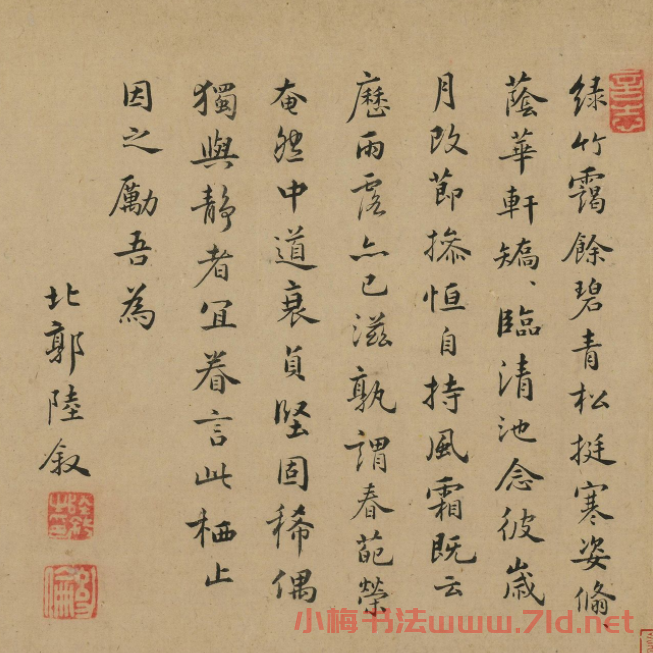 绿竹霭餘碧青松挺寒姿翛、
蔭華軒矯、臨清池念彼歲
月改節摻恒自持風霜既云
歷雨露亦已滋孰謂春葩榮
奄然中道衰貞堅固稀偶
獨與静者宜眷言此栖止
因之勵吾為
北郭陸叙
小梅书法www.71d.net